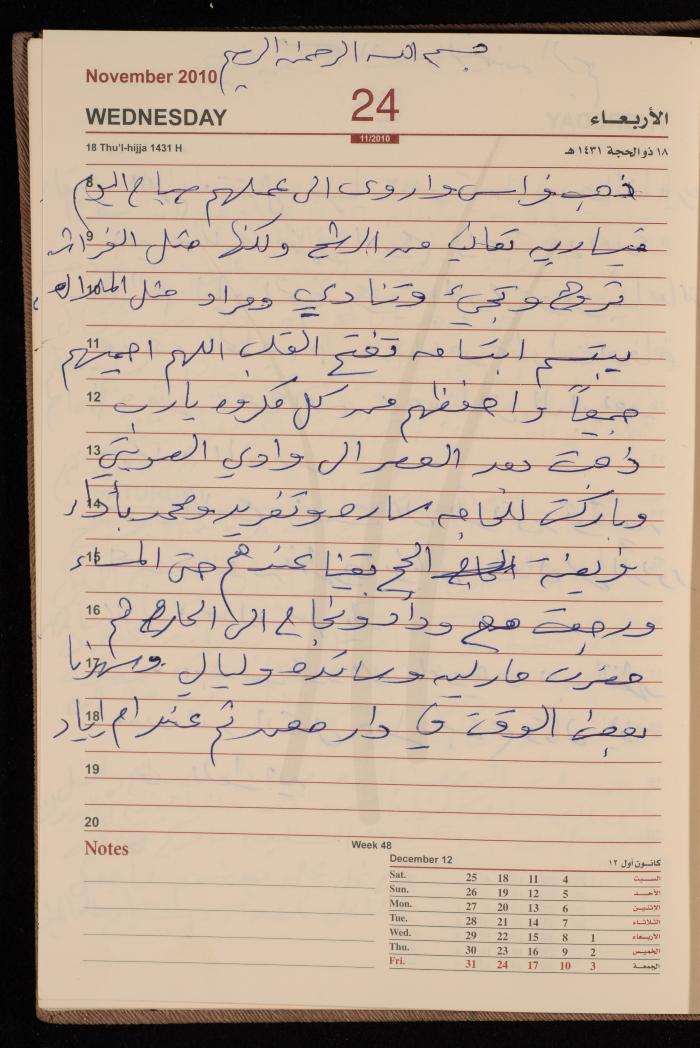 بسم الله الرحمن الرحيم
November 2010
WEDNESDAY
24
11/2010
الأربعاء
18 Thu'l-hijja 1431 H
١٨ ذو الحجة ١٤٣١ هـ
8 ذهب فراس واروى الى عملهم صباح اليوم
9 ميساريه تعاني من الرشح ولكنها مثل الفراشه
10 تروح وتجيء وتنادي ومراد مثل الملاك
11 يبتسم ابتسامه تفتح القلب اللهم احميهم
12 جميعاً واحفظهم من كل مكروه يا رب
13 ذهبت بعد العصر الى وادي
14 وباركت للحاجه ساره وتغريد ومحمد بأداء
15 فريضة الحج بقينا عندهم حتى المساء
16 ورجعت مع وداد ونجاح الى الحاره ثم
17 حضرت مارليه ورائده وليالي وسهرنا
18 بعض الوقت في دار ثم عند ام اياد
19
20
Notes
Week 48
December 12
كانون أول ١٢
Sat. 25 18 11 4 السبت
Sun. 26 19 12 5 الأحد
Mon. 27 20 13 6 الاثنين
Tue. 28 21 14 7 الثلاثاء
Wed. 29 22 15 8 1 الأربعاء
Thu. 30 23 16 9 2 الخميس
Fri. 31 24 17 10 3 الجمعة